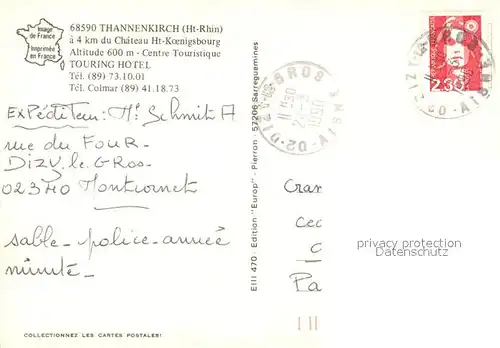 Image
de France
Imprimée
en France
68590 THANNENKIRCH (Ht-Rhin)
à 4 km du Château Ht-Kœnigsbourg
Altitude 600 m - Centre Touristique
TOURING HOTEL
Tél. (89) 73.10.01
Tél. Colmar (89) 41.18.73
Expéditeur: Mr Schmit A
rue du FOUR-
DIZY.le GROS-
02340 Montcornet
sable - police - année
minute -
COLLECTIONNEZ LES CARTES POSTALES!
EIII 470 - Edition "Europ" - Pierron - 57206 Sarreguemines
02-DIZY-LE-GROS AISNE
2,30
Cec
Pa
privacy protection
Datenschutz